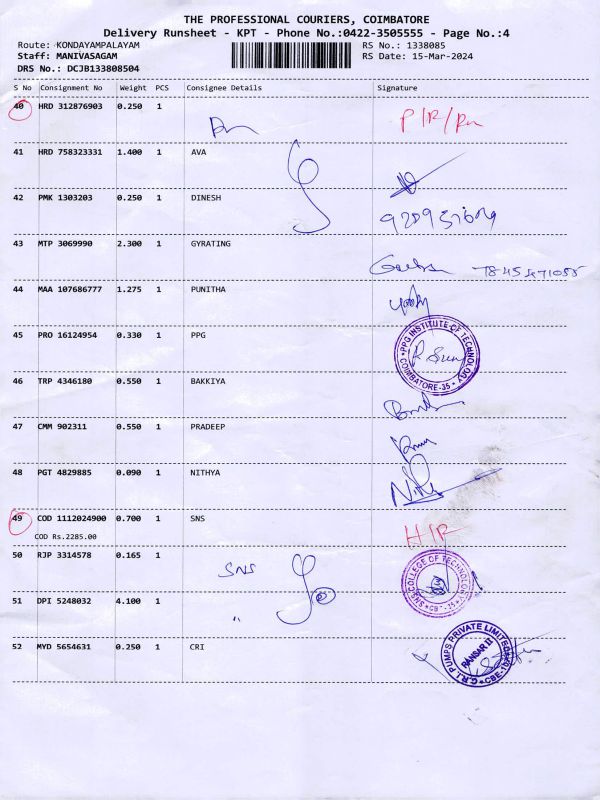 THE PROFESSIONAL COURIERS, COIMBATORE
Delivery Runsheet - KPT - Phone No.:0422-3505555 - Page No.:4
Route: KONDAYAMPALAYAM RS No.: 1338085
Staff: MANIVASAGAM RS Date: 15-Mar-2024
DRS No.: DCJB133808504
S No Consignment No Weight PCS Consignee Details Signature
40 HRD 312876903 0.250 1
41 HRD 758323331 1.400 1 AVA
42 PMK 1303203 0.250 1 DINESH
43 MTP 3069990 2.300 1 GYRATING
44 MAA 107686777 1.275 1 PUNITHA
45 PRO 16124954 0.330 1 PPG
PPG INSTITUTE OF TECHNOLOGY
COIMBATORE-35
46 TRP 4346180 0.550 1 BAKKIYA
47 CMM 902311 0.550 1 PRADEEP
48 PGT 4829885 0.090 1 NITHYA
49 COD 1112024900 0.700 1 SNS
COD Rs.2285.00
50 RJP 3314578 0.165 1 SNS
SNS COLLEGE OF TECHNOLOGY
51 DPI 5248032 4.100 1 "
52 MYD 5654631 0.250 1 CRI
C.R.I. PUMPS PRIVATE LIMITED
RANSAR II